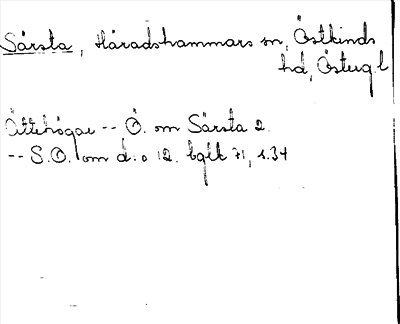 Särsta, Häradshammars sn, Östkinds
hd, Östergl
Ättehögar -- Ö. om Särsta 2.
-- S.Ö. om d:o 12. bglt 71, s.34